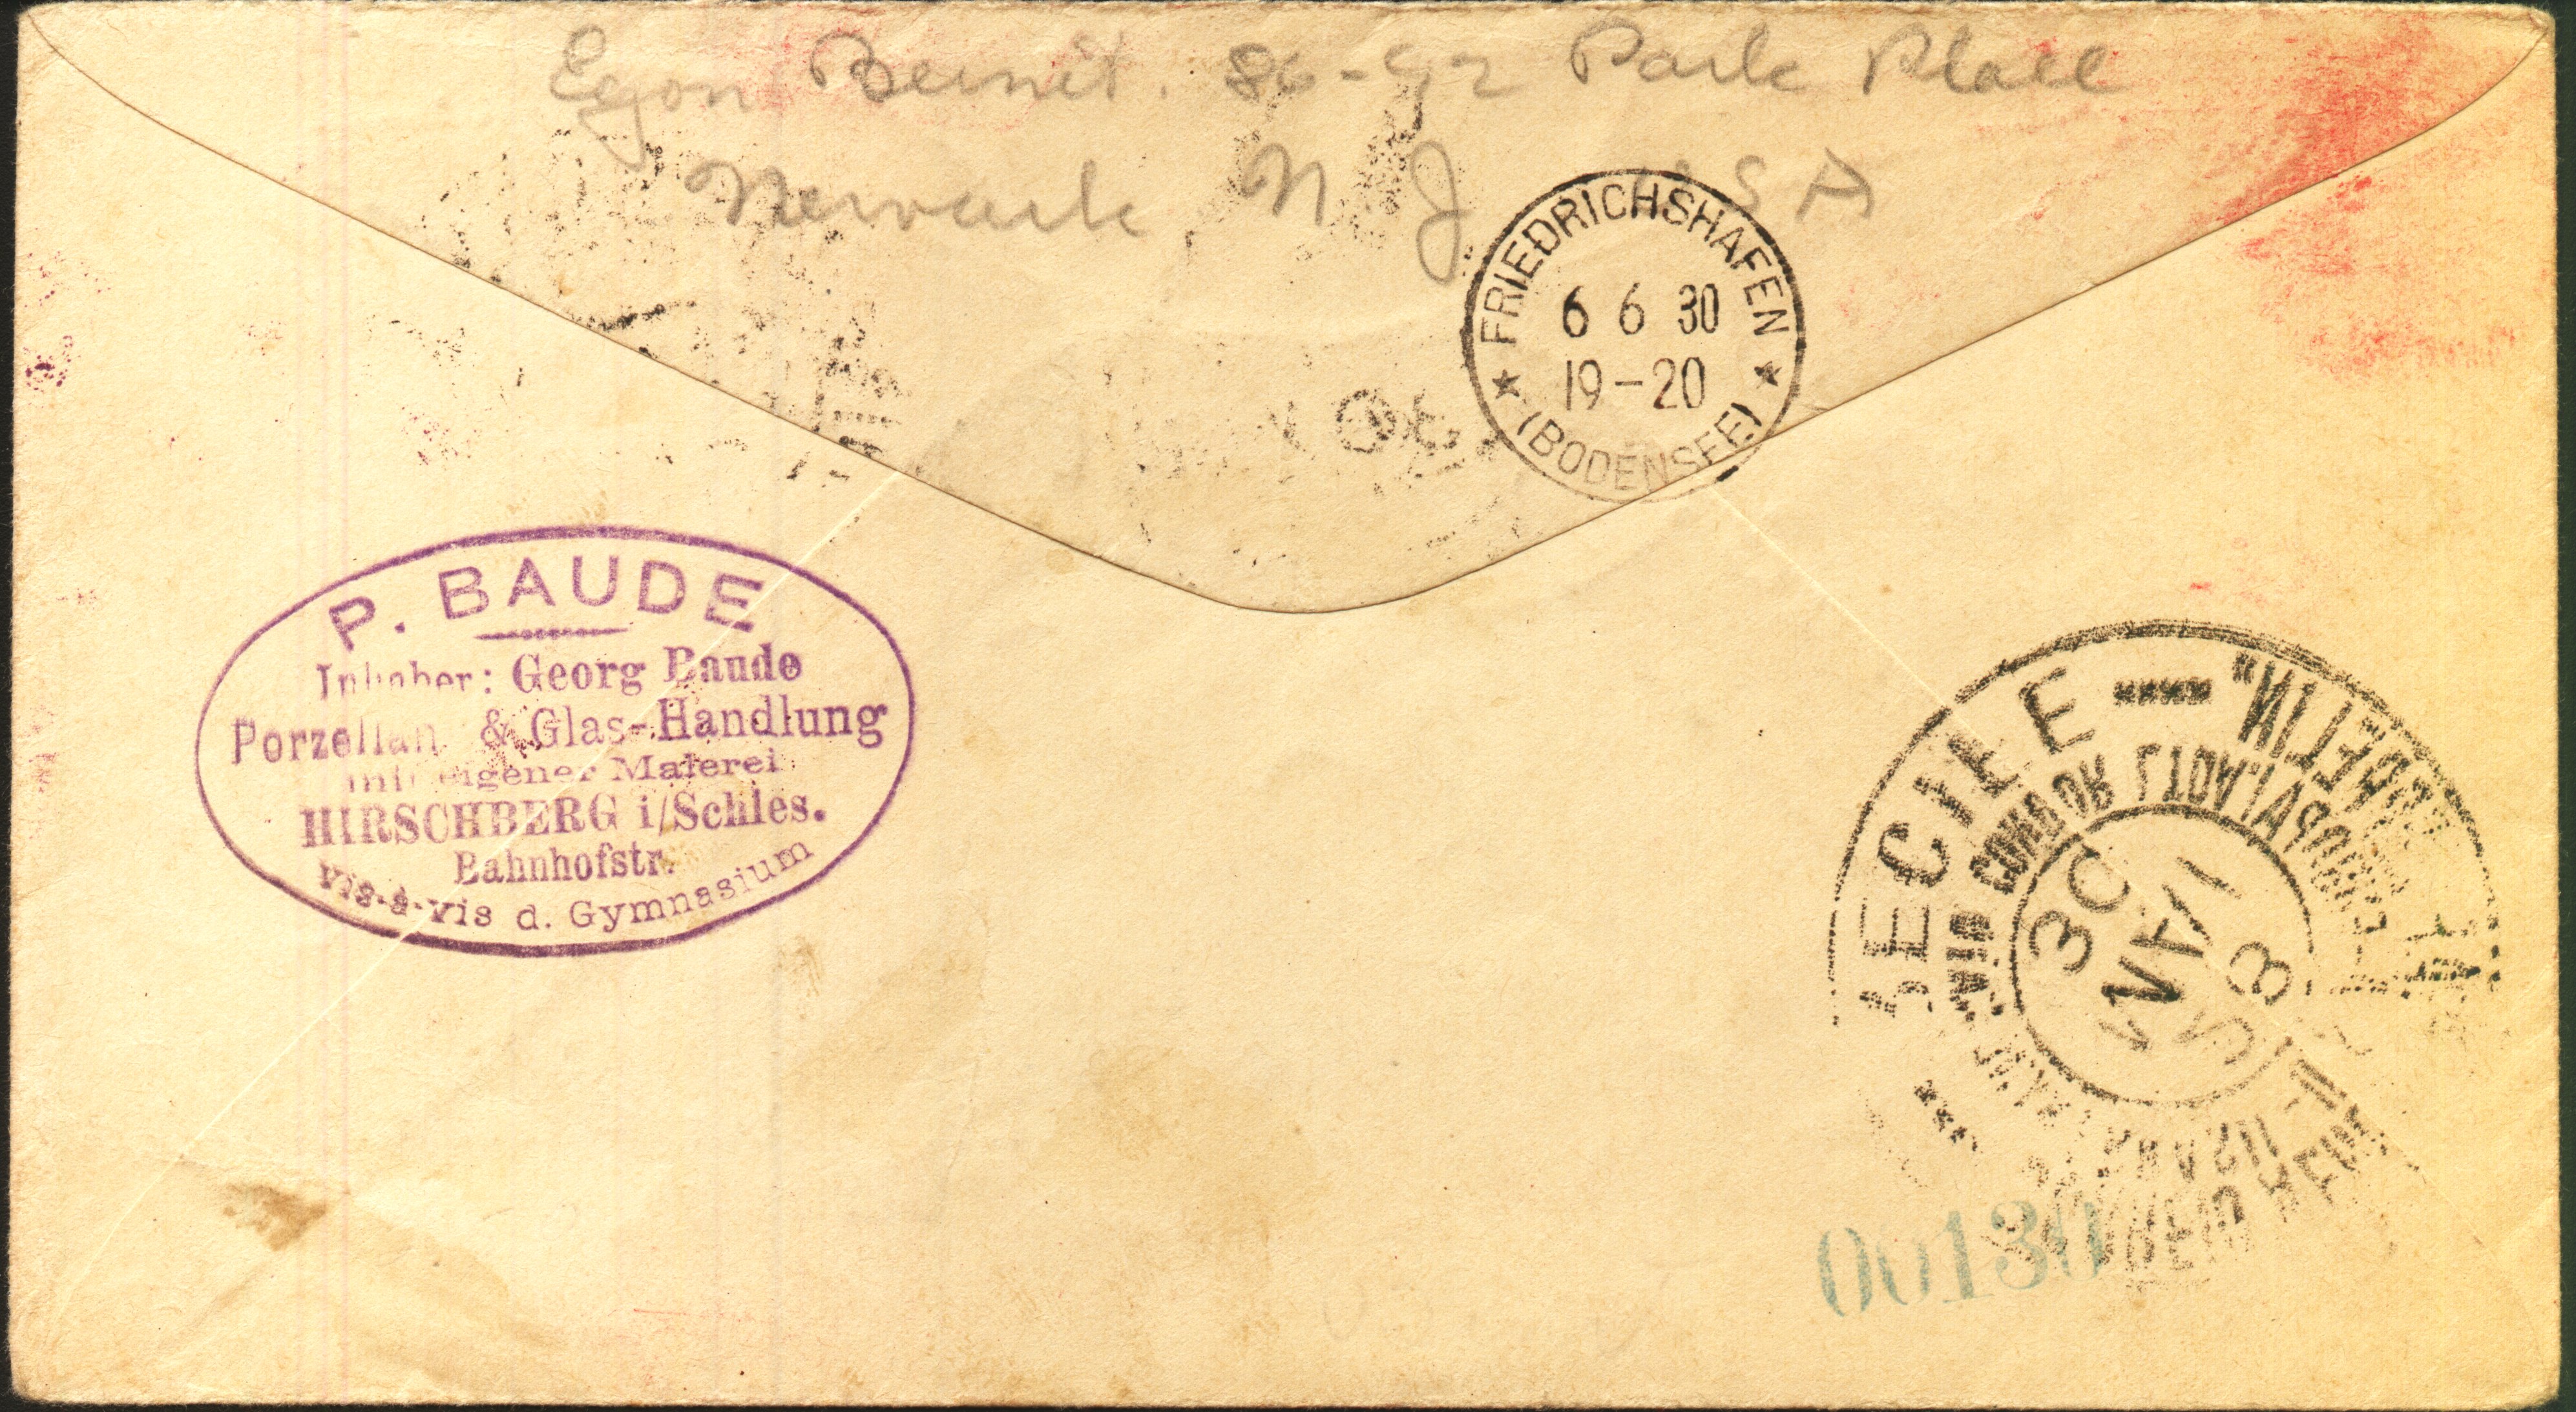 Egon Bernet. 86-92 Park Place
Newark, N J USA
FRIEDRICHSHAFEN
6 6 30
19-20
(BODENSEE)
P. BAUDE
Inhaber: Georg Baude
Porzellan & Glas-Handlung
mit eigener Malerei
HIRSCHBERG i/Schles.
Bahnhofstr.
vis-à-vis d. Gymnasium
RECIFE
CONDOR
30
MAI
00130